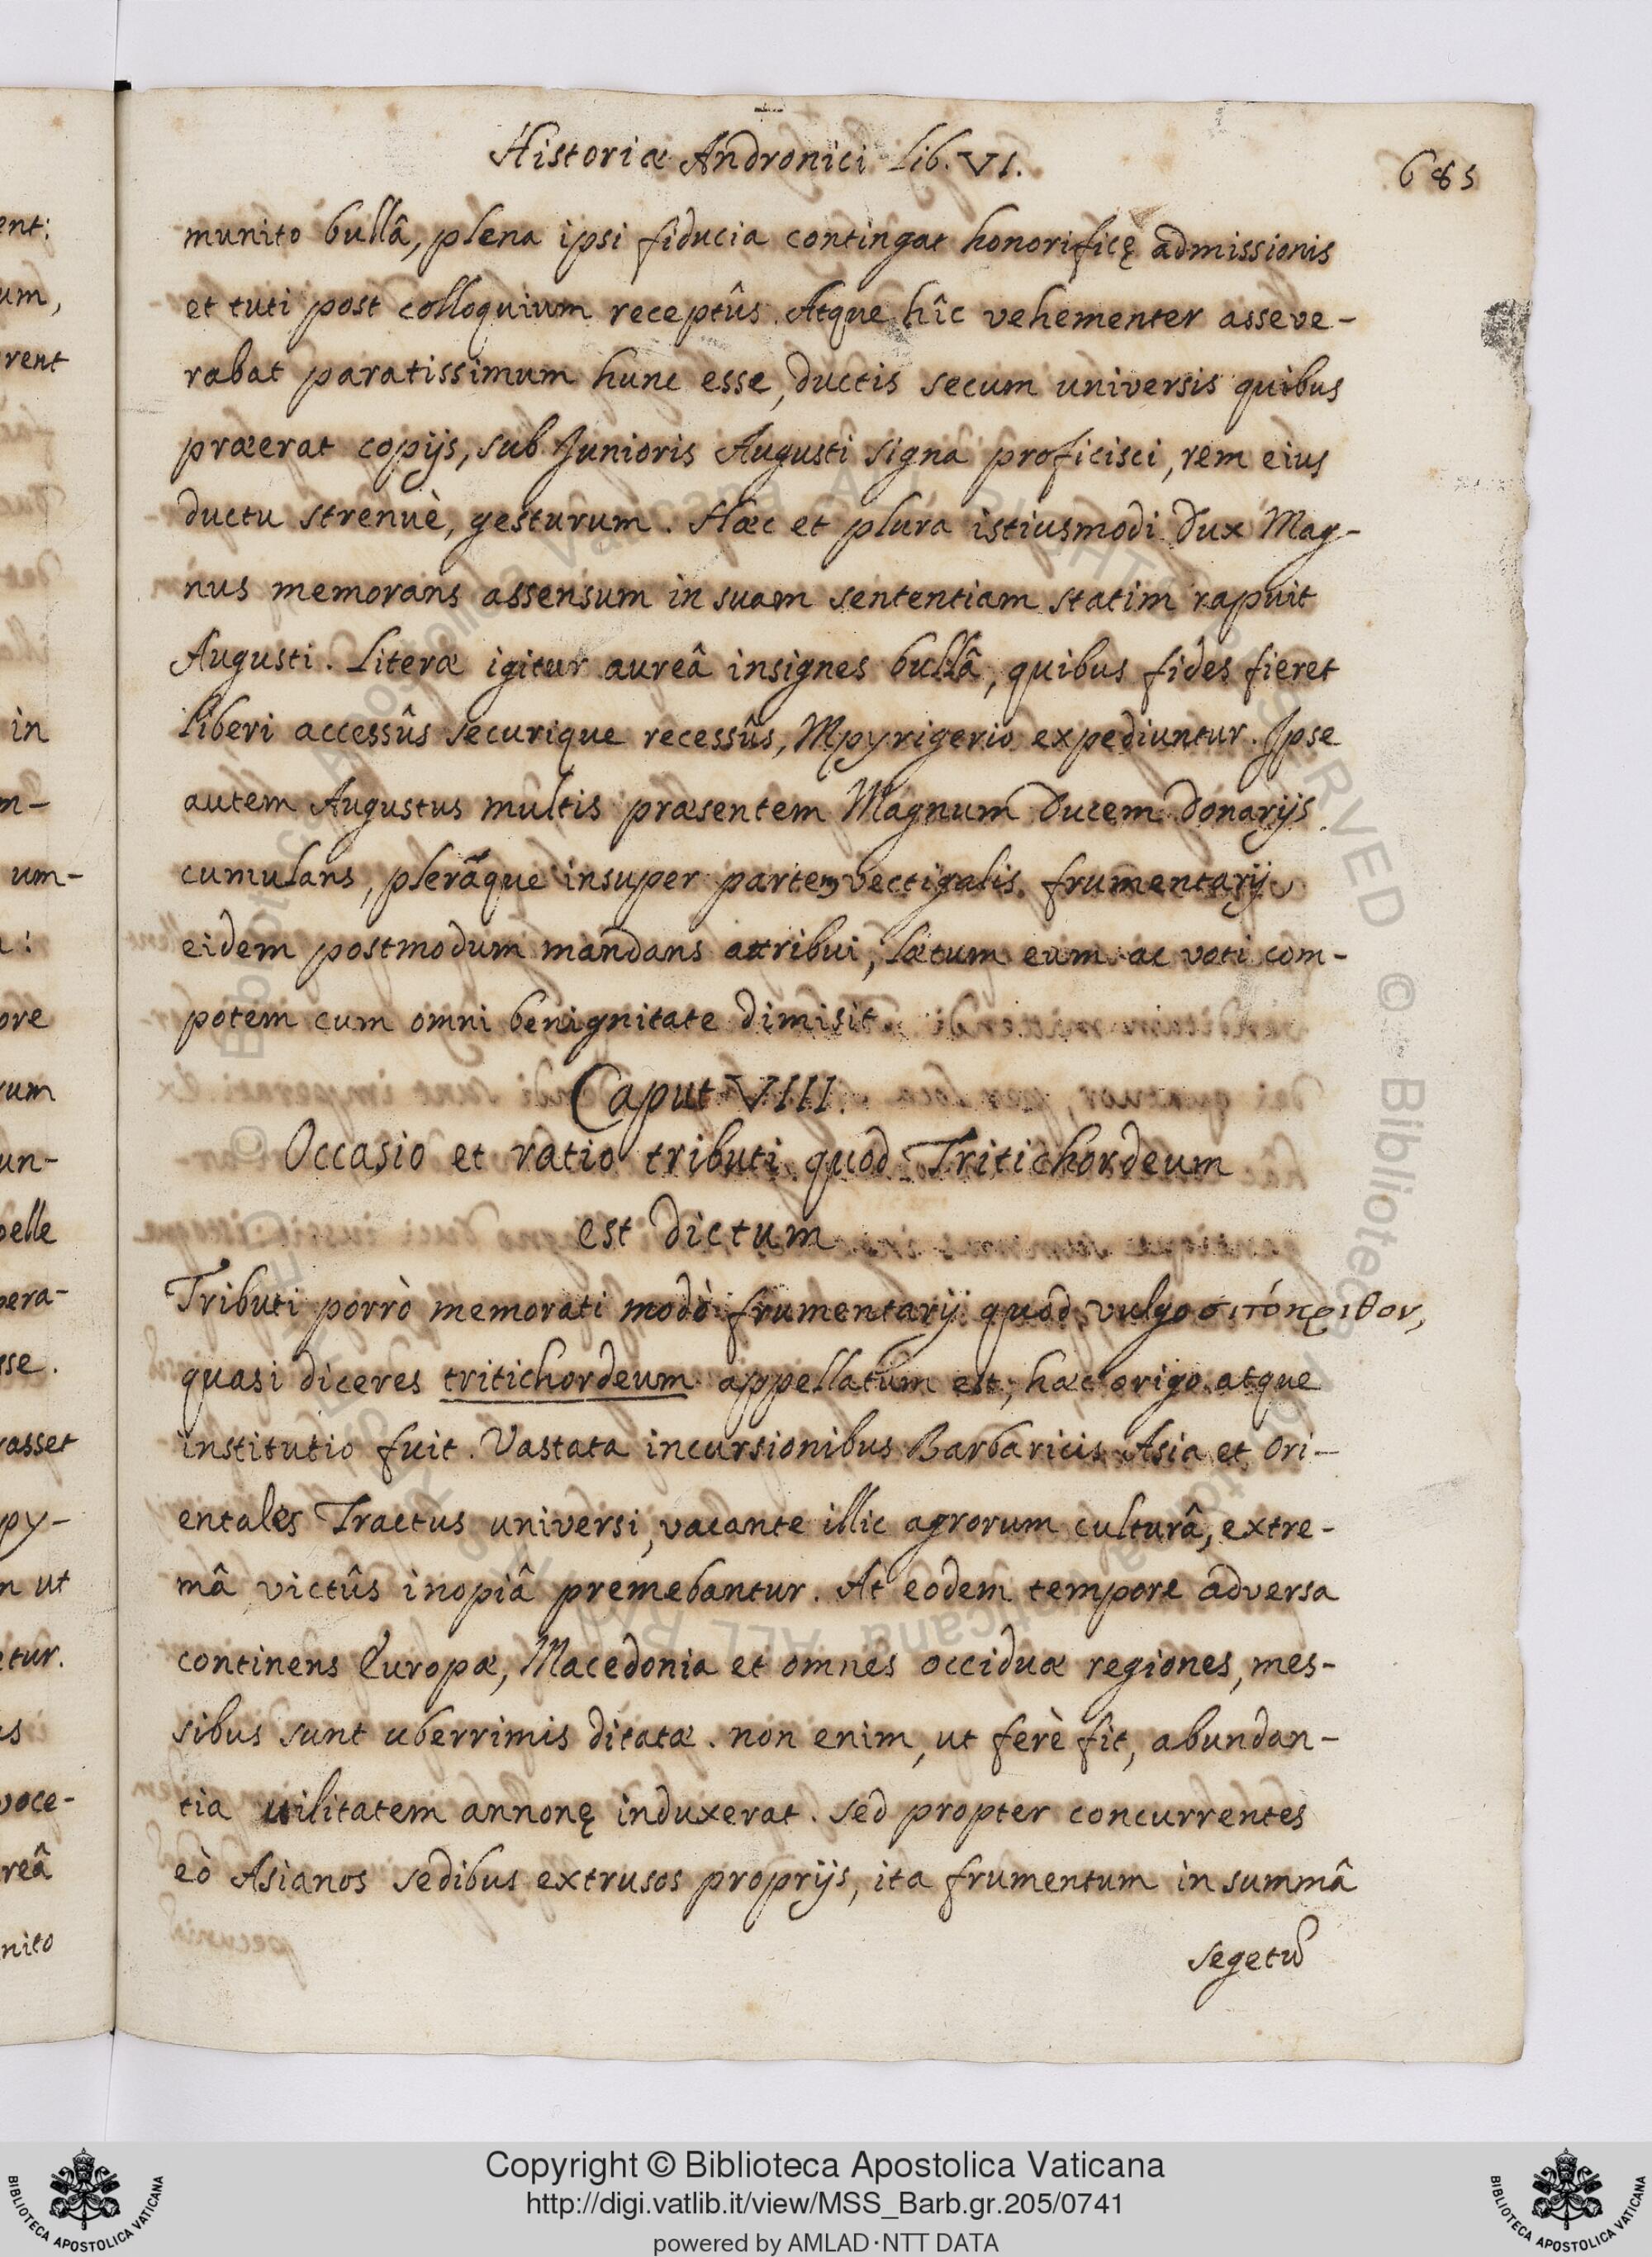 Historiæ Andronici Lib. VI.
685
munito bullâ, plena ipsi fiducia contingat honorificę admissionis
et tuti post colloquium receptûs. Atque hîc vehementer asseve-
rabat paratissimum hunc esse, ductis secum universis quibus
præerat copijs, sub Junioris Augusti signa proficisci, rem eius
ductu strenuè, gesturum. Hæc et plura istiusmodi Dux Mag-
nus memorans assensum in suam sententiam statim rapuit
Augusti. Literæ igitur aureâ insignes bullâ, quibus fides fieret
liberi accessûs securique recessûs, Mpyrigerio expediuntur. Ipse
autem Augustus multis præsentem Magnum Ducem donarijs
cumulans, plerãque insuper partem vectigalis frumentarij
eidem postmodum mandans attribui, lætum eum ac voti com-
potem cum omni benignitate dimisit.
Caput VIII.
Occasio et ratio tributi quod Tritichordeum
est dictum
Tributi porrò memorati modò frumentarij quod vulgo σιτόκριθον,
quasi diceres tritichordeum appellatum est, hæc origo atque
institutio fuit. Vastata incursionibus Barbaricis Asia et Ori-
entales Tractus universi, vacante illic agrorum culturâ, extre-
mâ victûs inopiâ premebantur. At eodem tempore adversa
continens Europæ, Macedonia et omnes occiduæ regiones, mes-
sibus sunt uberrimis ditatæ. non enim, ut ferè fit, abundan-
tia uilitatem annonę induxerat. sed propter concurrentes
eò Asianos sedibus extrusos proprijs, ita frumentum in summâ
segetũ
ent:
um,
rent
in
m-
um-
a:
ore
rum
un-
pelle
pera-
sse.
rasset
py-
n ut
etur.
us
voce-
reâ
nito
© Biblioteca Apostolica Vaticana ALL RIGHTS RESERVED
© Biblioteca Apostolica Vaticana ALL RIGHTS RESERVED
Copyright © Biblioteca Apostolica Vaticana
http://digi.vatlib.it/view/MSS_Barb.gr.205/0741
powered by AMLAD·NTT DATA
BIBLIOTECA APOSTOLICA VATICANA
BIBLIOTECA APOSTOLICA VATICANA